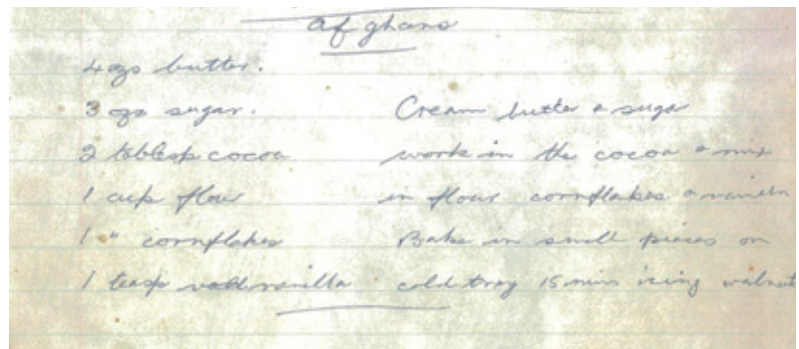 Afghans
4 ozs butter.
3 ozs sugar.
2 tablesp cocoa
1 cup flour
1 " cornflakes
1 teasp vanilla
Cream butter & sugar
work in the cocoa & mix
in flour cornflakes & vanilla
Bake in small pieces on
cold tray 15 mins icing walnut